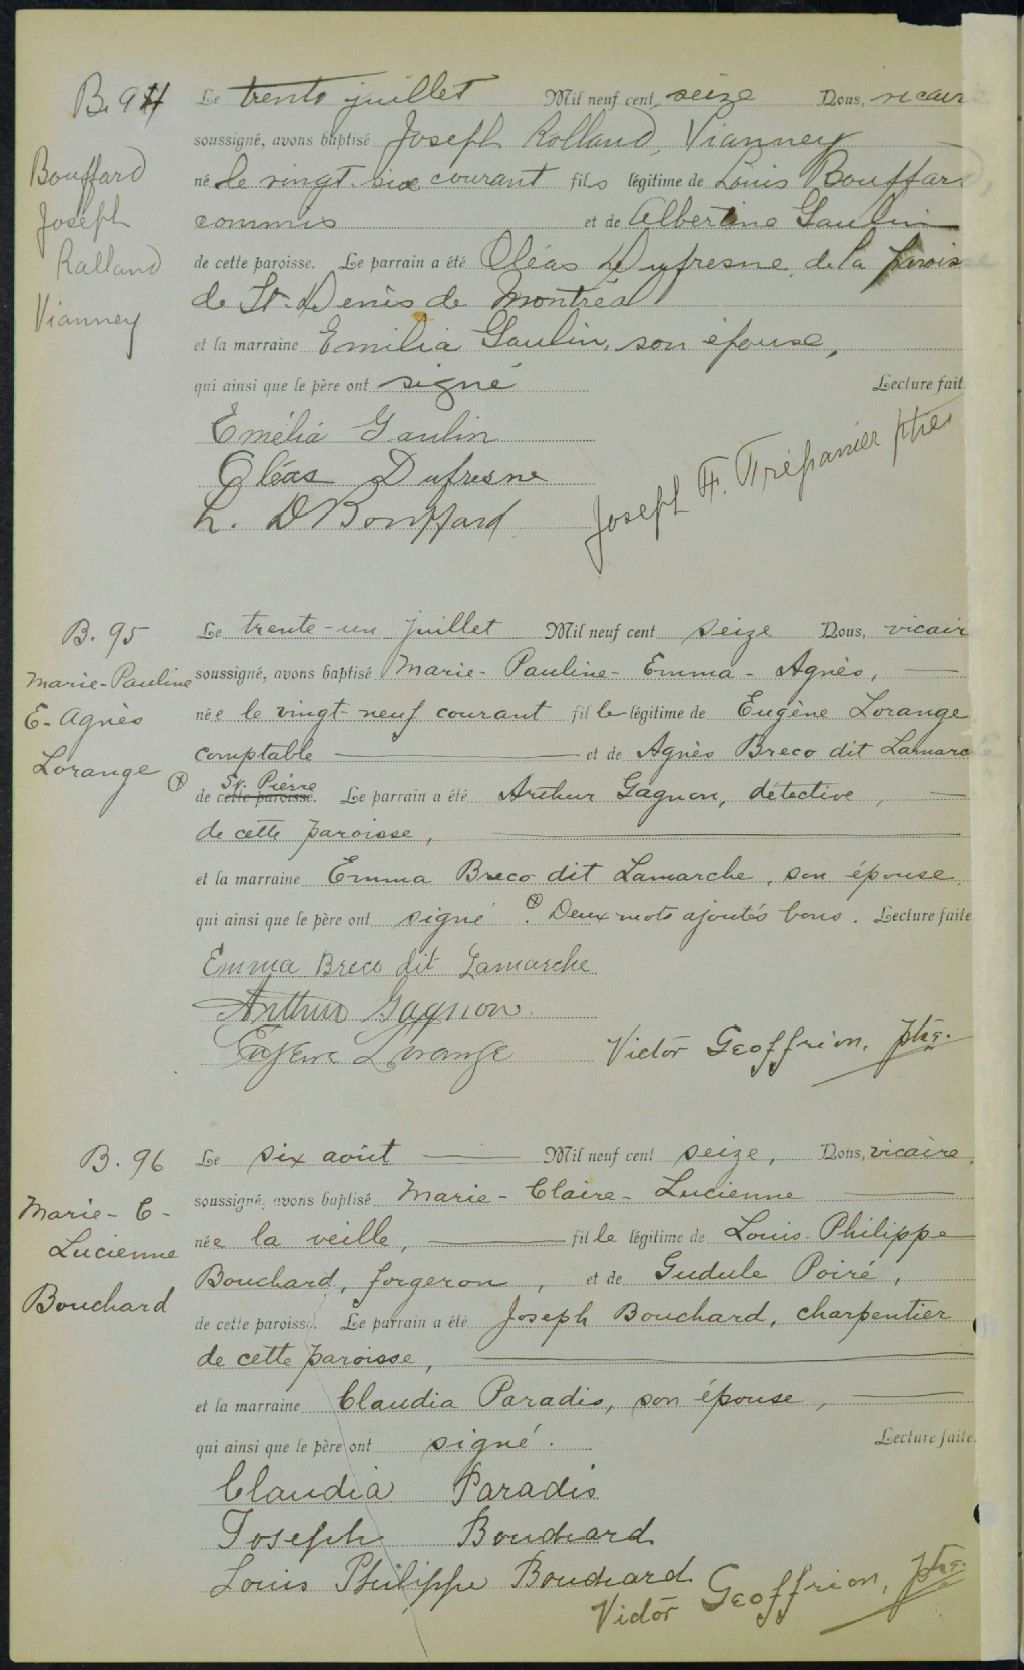 B. 94 Le trente juillet Mil neuf cent seize Nous, vicair
soussigné, avons baptisé Joseph Rolland, Vianney
Bouffard
né le vingt-six courant fils légitime de Louis Bouffar
Joseph
commis et de Albertine Gaulin
Rolland
de cette paroisse. Le parrain a été Oléas Dufresne, de la parois
de St-Denis de Montréal
Vianney
et la marraine Emilia Gaulin, son épouse,
qui ainsi que le père ont signé Lecture fait
Emélia Gaulin
Oléas Dufresne
L. D Bouffard
Joseph F. Trépanier ptre
B. 95 Le trente-un juillet Mil neuf cent seize Nous, vicair
Marie-Pauline
soussigné, avons baptisé Marie-Pauline-Emma-Agnès,
E-Agnès
née le vingt-neuf courant fille légitime de Eugène Lorange
comptable et de Agnès Breco dit Lamarc
Lorange
St. Pierre
de cette paroisse. Le parrain a été Arthur Gagnon, détective,
de cette paroisse,
et la marraine Emma Breco dit Lamarche, son épouse,
qui ainsi que le père ont signé. ⊕ Deux mots ajoutés bons. Lecture faite
Emma Breco dit Lamarche
Arthur Gagnon
Eugène Lorange
Victor Geoffrion, ptre.
B. 96 Le six août Mil neuf cent seize, Nous, vicaire,
Marie-C-
soussigné, avons baptisé Marie-Claire-Lucienne
Lucienne
née la veille, fille légitime de Louis-Philippe
Bouchard
Bouchard, forgeron, et de Gudule Poiré,
de cette paroisse. Le parrain a été Joseph Bouchard, charpentier
de cette paroisse,
et la marraine Claudia Paradis, son épouse,
qui ainsi que le père ont signé. Lecture faite
Claudia Paradis
Joseph Bouchard
Louis Philippe Bouchard
Victor Geoffrion, ptre.